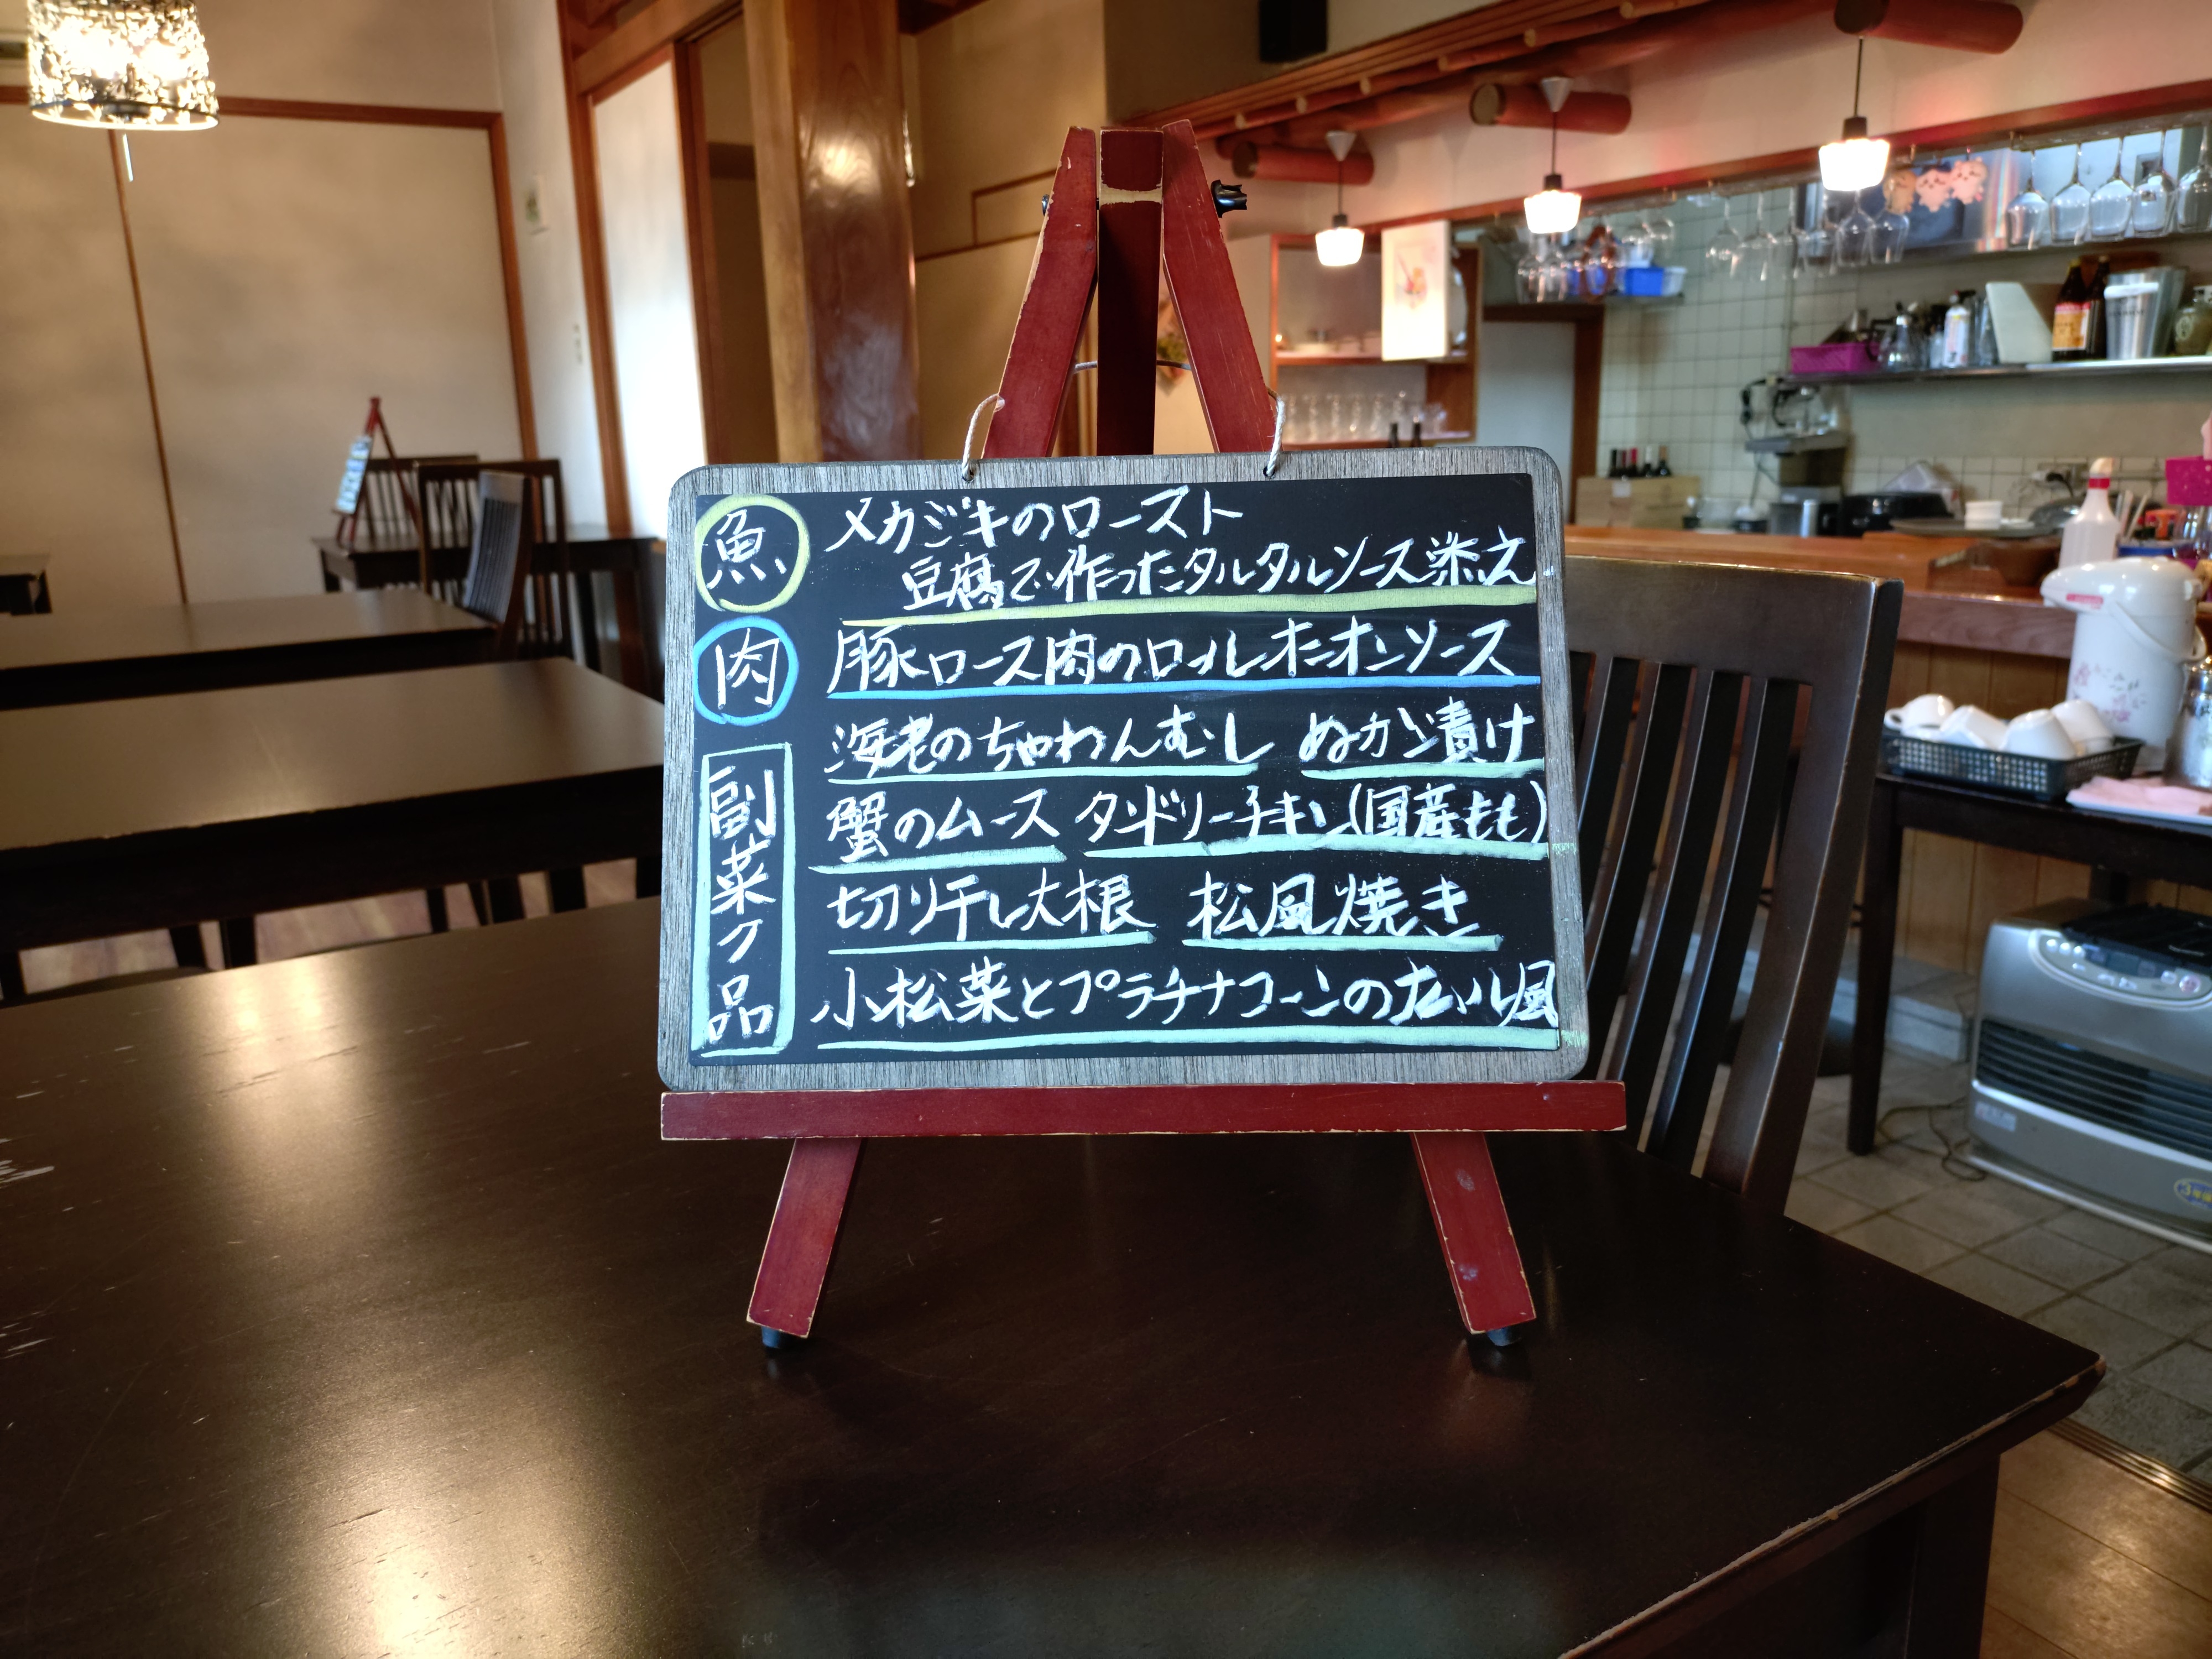 魚 メカジキのロースト
豆腐で作ったタルタルソース添え
肉 豚ロース肉のロールオニオンソース
副菜7品
海老のちゃわんむし ぬか漬け
蟹のムース タンドリーチキン(国産もも)
切り干し大根 松風焼き
小松菜とプラチナコーンのナムル風